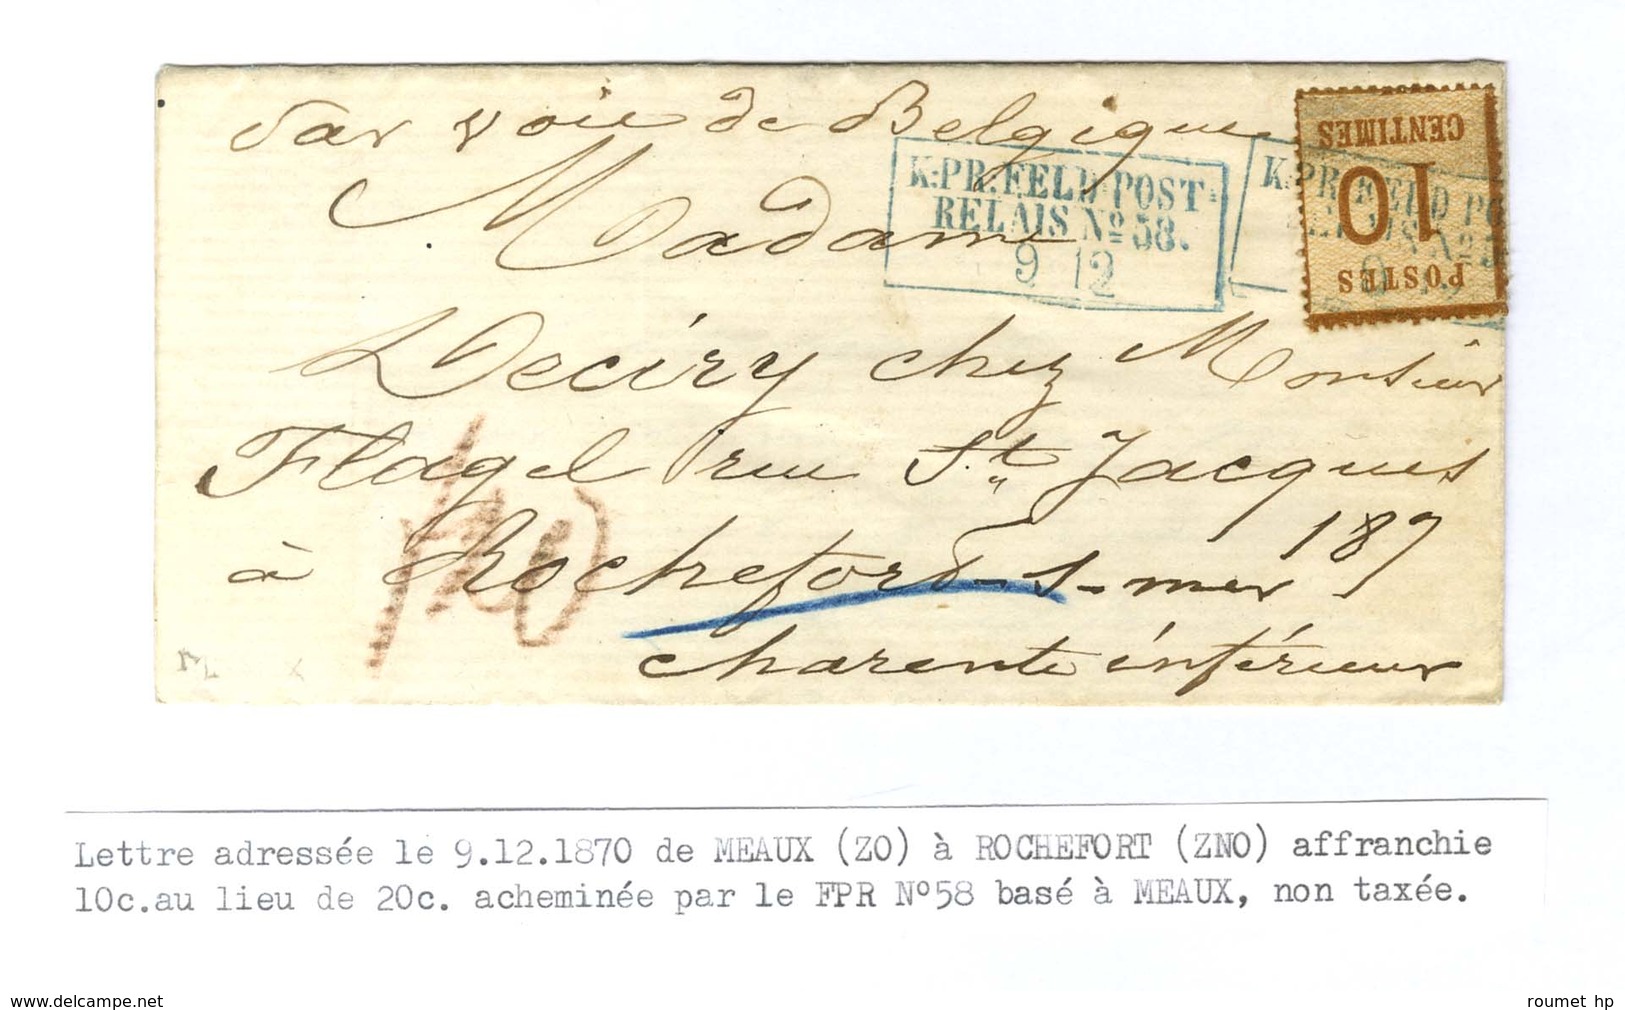 Par voie de Belgique
Madame
K:PR:FELD-POST-
RELAIS No 58.
9 12
K:PR:FELD PO
No 5
POSTES
10
CENTIMES
Deciry chez Monsieur
Flagel rue St Jacques
187
à Rochefort-s-mer
charente inférieure
Lettre adressée le 9.12.1870 de MEAUX (ZO) à ROCHEFORT (ZNO) affranchie
10c.au lieu de 20c. acheminée par le FPR N°58 basé à MEAUX, non taxée.
www.delcampe.net
roumet hp